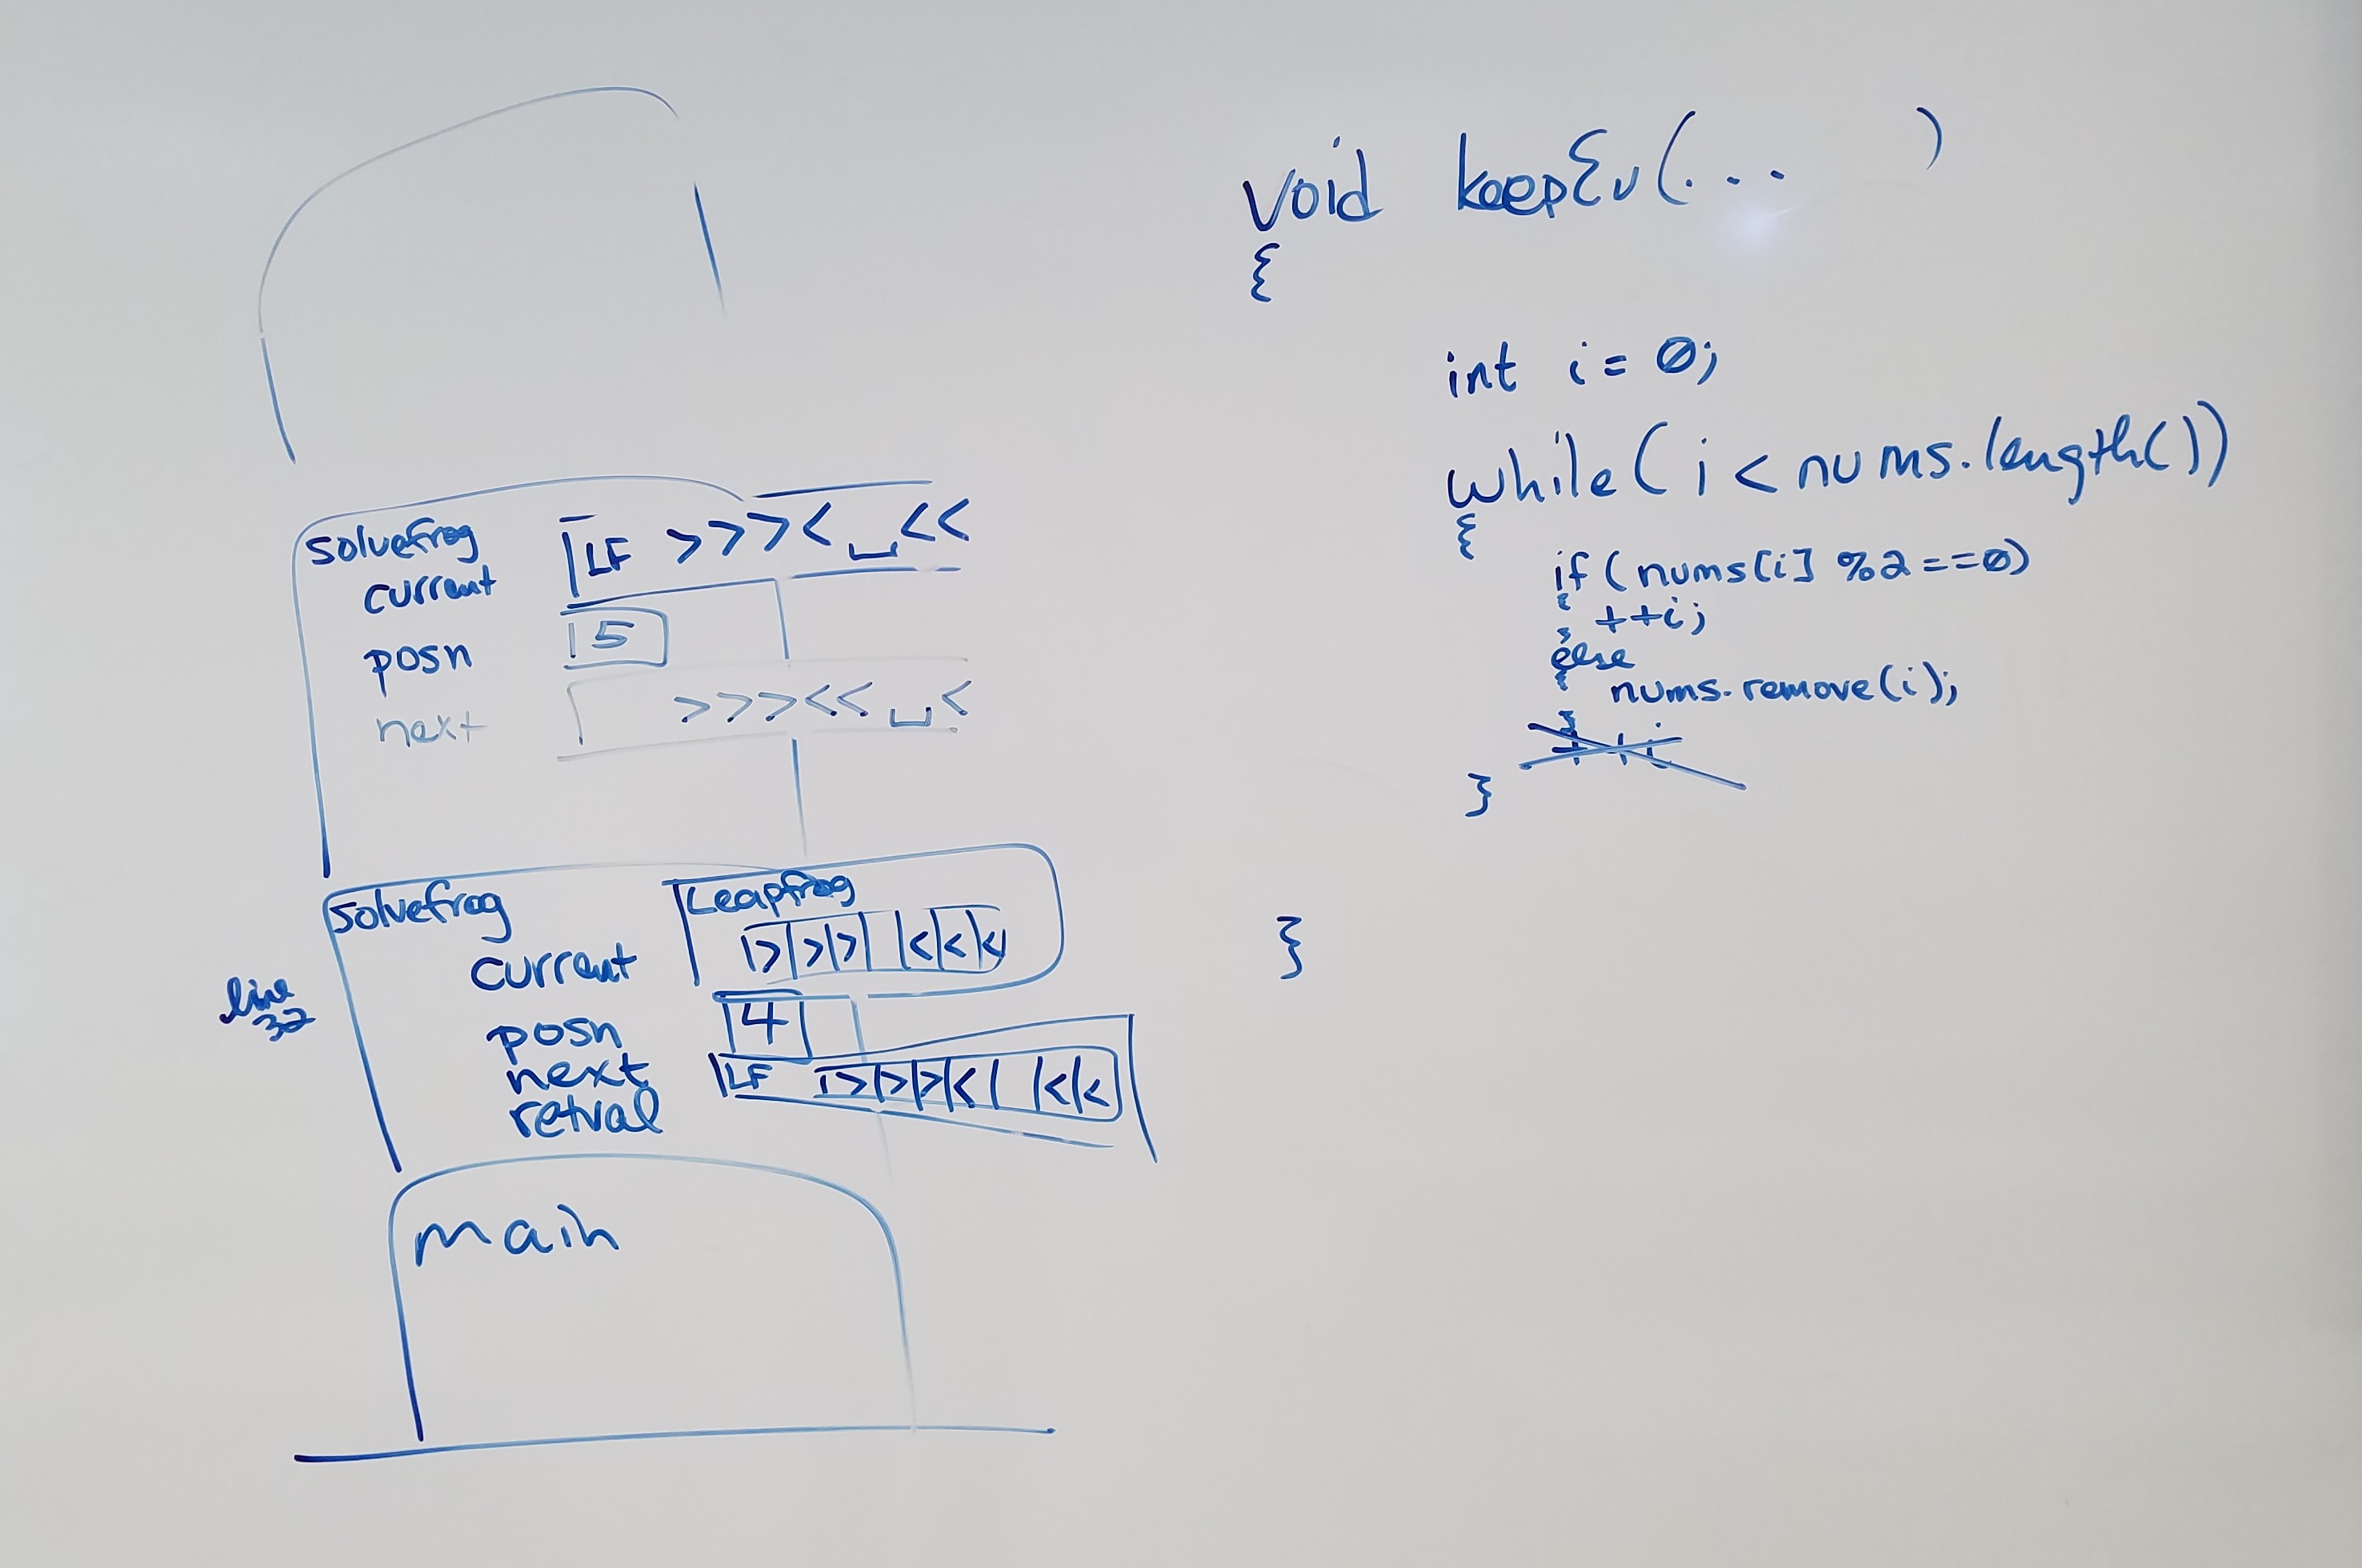 solvefrog
LF >>>< ⎵<<
current
posn 5
next >>><< ⎵<
solvefrog
Leapfrog
current |>|>|>| |<|<|<
line
32
posn 4
next LF |>|>|>|<| |<|<
retval
main
void keepEv(... )
{
int i = 0;
while( i < nums.length())
{
if (nums[i] %2==0)
{ ++i;
}
else
{ nums.remove(i);
}
++i
}
}